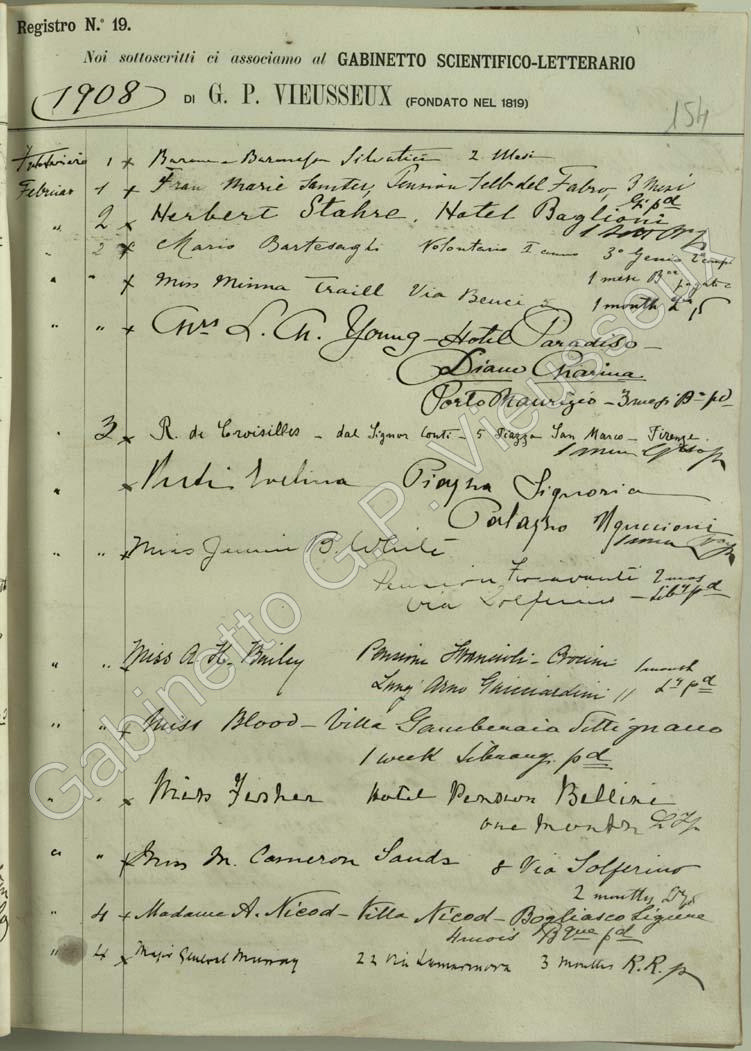 Registro N.° 19.
Noi sottoscritti ci associamo al GABINETTO SCIENTIFICO-LETTERARIO
1908 DI G. P. VIEUSSEUX (FONDATO NEL 1819)
154
1 x Barone e Baronessa Silvatici 2 Mesi
Februar 1 x Frau Marie Samter, Pension 3 Mesi
pd
" 2 x Herbert Stahre. Hotel Baglioni
2 x Mario Bartesaghi Volontario I anno 3° Genio
1 mese
" " x Miss Minna Traill Via Benci 5 1 month
" " x Mrs L. M. Young - Hotel Paradiso -
Diano Marina
Porto Maurizio - 3 mesi pd
" 3 x R. de Croisilles - dal Signor Conti - 5 Piazza San Marco - Firenze.
" x Evelina Piazza Signoria
Palazzo Uguccioni
" " x Miss Jennie B. White
Pension Fioravanti 2 mos
Via Solferino - Liby pd
" " x Miss A. H. Bailey Pensione Crocini 1 month
Lung' Arno Guicciardini 11 pd
" " x Miss Blood - Villa Gamberaia Settignano
1 week Library. pd
" " x Miss Fisher Hotel Pension Bellini
one month
" " x Miss M. Cameron Sands 8 Via Solferino
2 months
" 4 x Madame A. Nicod - Villa Nicod - Bogliasco Ligure
4 mois Bque pd
" 4 x Major General Murray 22 Via Lamarmora 3 months R.R. p
Gabinetto G.P. Vieusseux